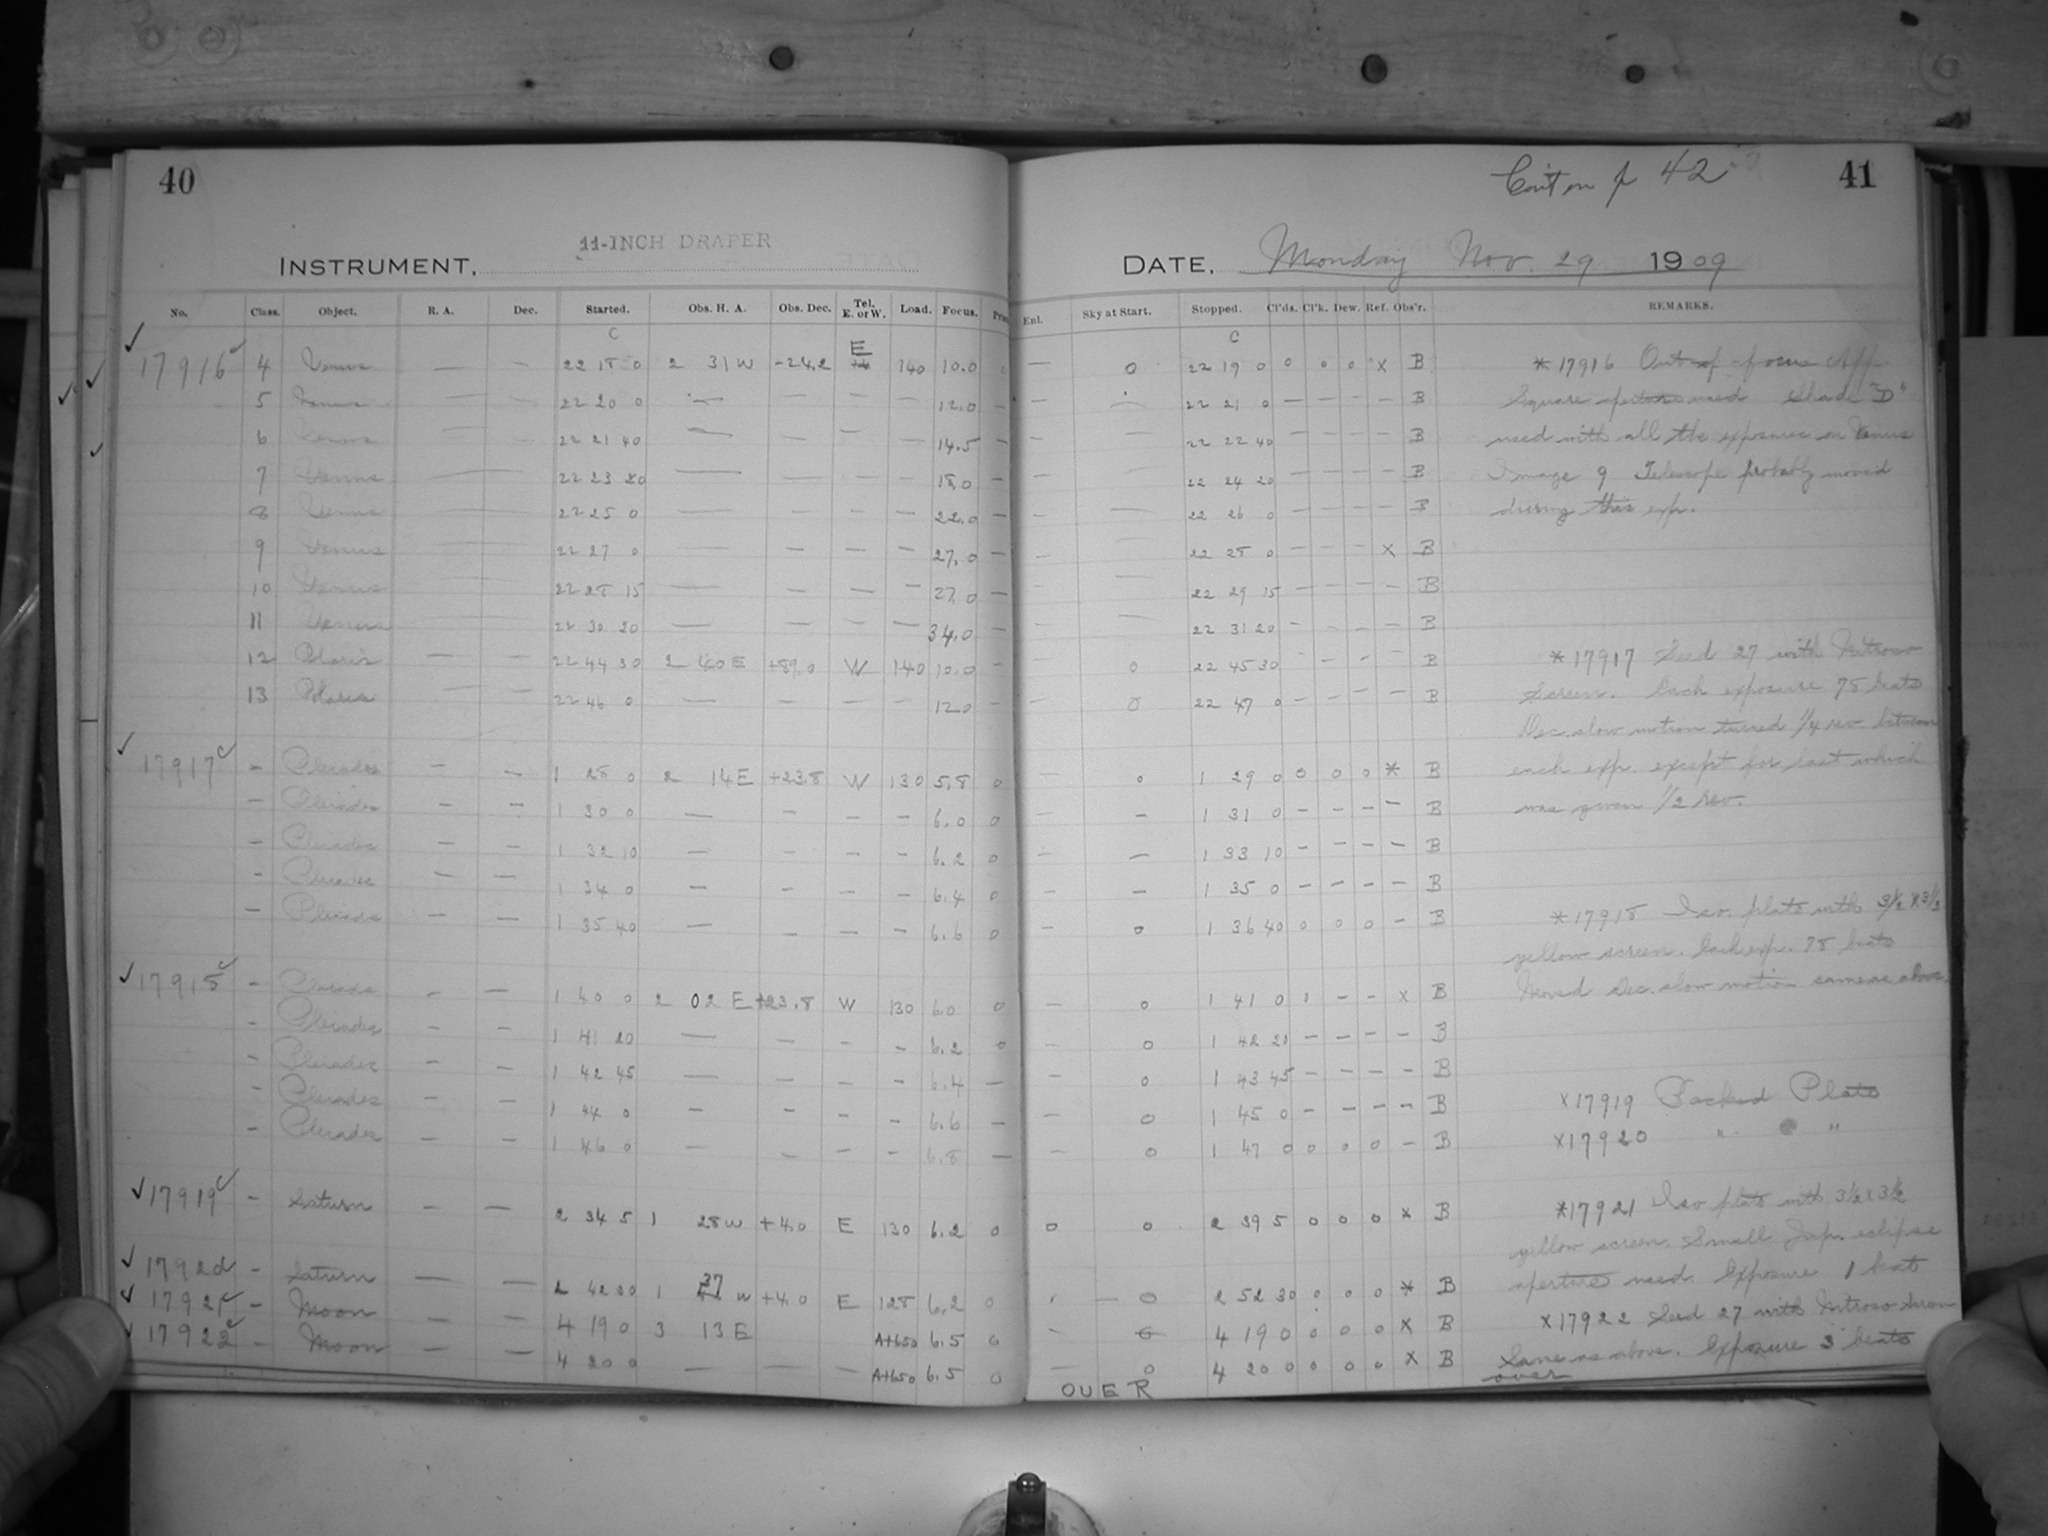 40
11-INCH DRAPER
INSTRUMENT,
No. Class. Object. R. A. Dec. Started. Obs. H. A. Obs. Dec. Tel. E. or W. Load. Focus.
C
17916 4 Venus — — 22 18 0 2 31 W -24.2 E 140 10.0
5 Venus — — 22 20 0 — — — — 12.0 —
6 Venus — — 22 21 40 — — — — 14.5 —
7 Venus — — 22 23 20 — — — — 18.0 —
8 Venus — — 22 25 0 — — — — 22.0 —
9 Venus — — 22 27 0 — — — — 27.0 —
10 Venus — — 22 28 15 — — — — 27.0 —
11 Venus — — 22 30 20 — — — — 34.0 —
12 Polaris — — 22 44 30 2 40 E +89.0 W 140 10.0 —
13 Polaris — — 22 46 0 — — — — 12.0 —
17917 - Pleiades — — 1 28 0 2 14 E +23.8 W 130 5.8 0
- Pleiades — — 1 30 0 — — — — 6.0 0
- Pleiades — — 1 32 10 — — — — 6.2 0
- Pleiades — — 1 34 0 — — — — 6.4 0
- Pleiades — — 1 35 40 — — — — 6.6 0
17918 - Pleiades — — 1 40 0 2 02 E +23.8 W 130 6.0 0
- Pleiades — — 1 41 20 — — — — 6.2 0
- Pleiades — — 1 42 45 — — — — 6.4 —
- Pleiades — — 1 44 0 — — — — 6.6 —
- Pleiades — — 1 46 0 — — — — 6.8 —
17919 - Saturn — — 2 34 5 1 28 W +4.0 E 130 6.2 0
17920 - Saturn — — 2 42 30 1 37 W +4.0 E 128 6.2 0
17921 - Moon — — 4 19 0 3 13 E A+650 6.5 0
17922 - Moon — — 4 20 0 — — — A+650 6.5 0
Cont on p 42
41
DATE, Monday Nov. 29 1909
Enl. Sky at Start. Stopped. Cl'ds. Cl'k. Dew. Ref. Obs'r. REMARKS.
C
— 0 22 19 0 0 0 0 x B
— — 22 21 0 — — — — B
— — 22 22 40 — — — — B
— — 22 24 20 — — — — B
— — 22 26 0 — — — — B
— — 22 28 0 — — — x B
— — 22 29 15 — — — — B
— — 22 31 20 — — — — B
— 0 22 45 30 — — — — B
— 0 22 47 0 — — — — B
— 0 1 29 0 0 0 0 * B
— — 1 31 0 — — — — B
— — 1 33 10 — — — — B
— — 1 35 0 — — — — B
— 0 1 36 40 0 0 0 — B
— 0 1 41 0 1 — — x B
— 0 1 42 20 — — — — B
— 0 1 43 45 — — — — B
— 0 1 45 0 — — — — B
— 0 1 47 0 0 0 0 — B
0 0 2 39 5 0 0 0 x B
— 0 2 52 30 0 0 0 * B
— 0 4 19 0 0 0 0 x B
— 0 4 20 0 0 0 0 x B
OVER
*17916 Out of focus App
Square aperture used Shade "D"
used with all the exposures on Venus
Image 9 Telescope probably moved
during this exp.
*17917 Seed 27 with Nitroso
Screen. Each exposure 78 beats
Dec. slow motion turned 1/4 rev. between
each exp. except for last which
was given 1/2 rev.
*17918 Iso. plate with 3½ x 3½
yellow screen. Each exp. 78 beats
Moved Dec. slow motion same as above.
x17919 Backed Plate
x17920 " "
*17921 Iso plate with 3½ x 3½
yellow screen. Small Jap. eclipse
aperture used. Exposure 1 beat
x17922 Seed 27 with Nitroso Screen
Same as above. Exposure 3 beats
over